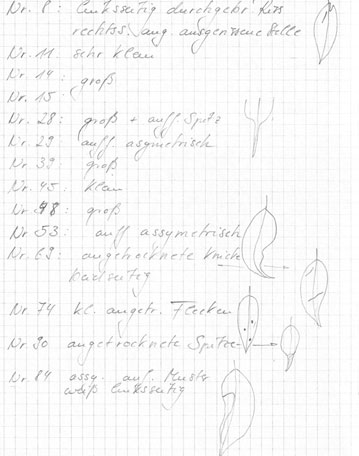 Nr. 8 : linksseitig durchgehr. Riss
rechtss. ang. ausgerissene Stelle
Nr. 11. sehr klein
Nr. 14 : groß
Nr. 15 :
Nr. 28 : groß + auff. Spitz
Nr. 29 : auff. asymetrisch
Nr. 39 : groß
Nr. 45 : klein
Nr. 48 : groß
Nr. 53 : auff assymetrisch
Nr. 69 : angetrocknete Knick
beidseitig
Nr. 74 kl. angetr. Flecken
Nr. 90 angetrocknete Spitze
Nr. 84 assy. auf. Muster
weiß linksseitig